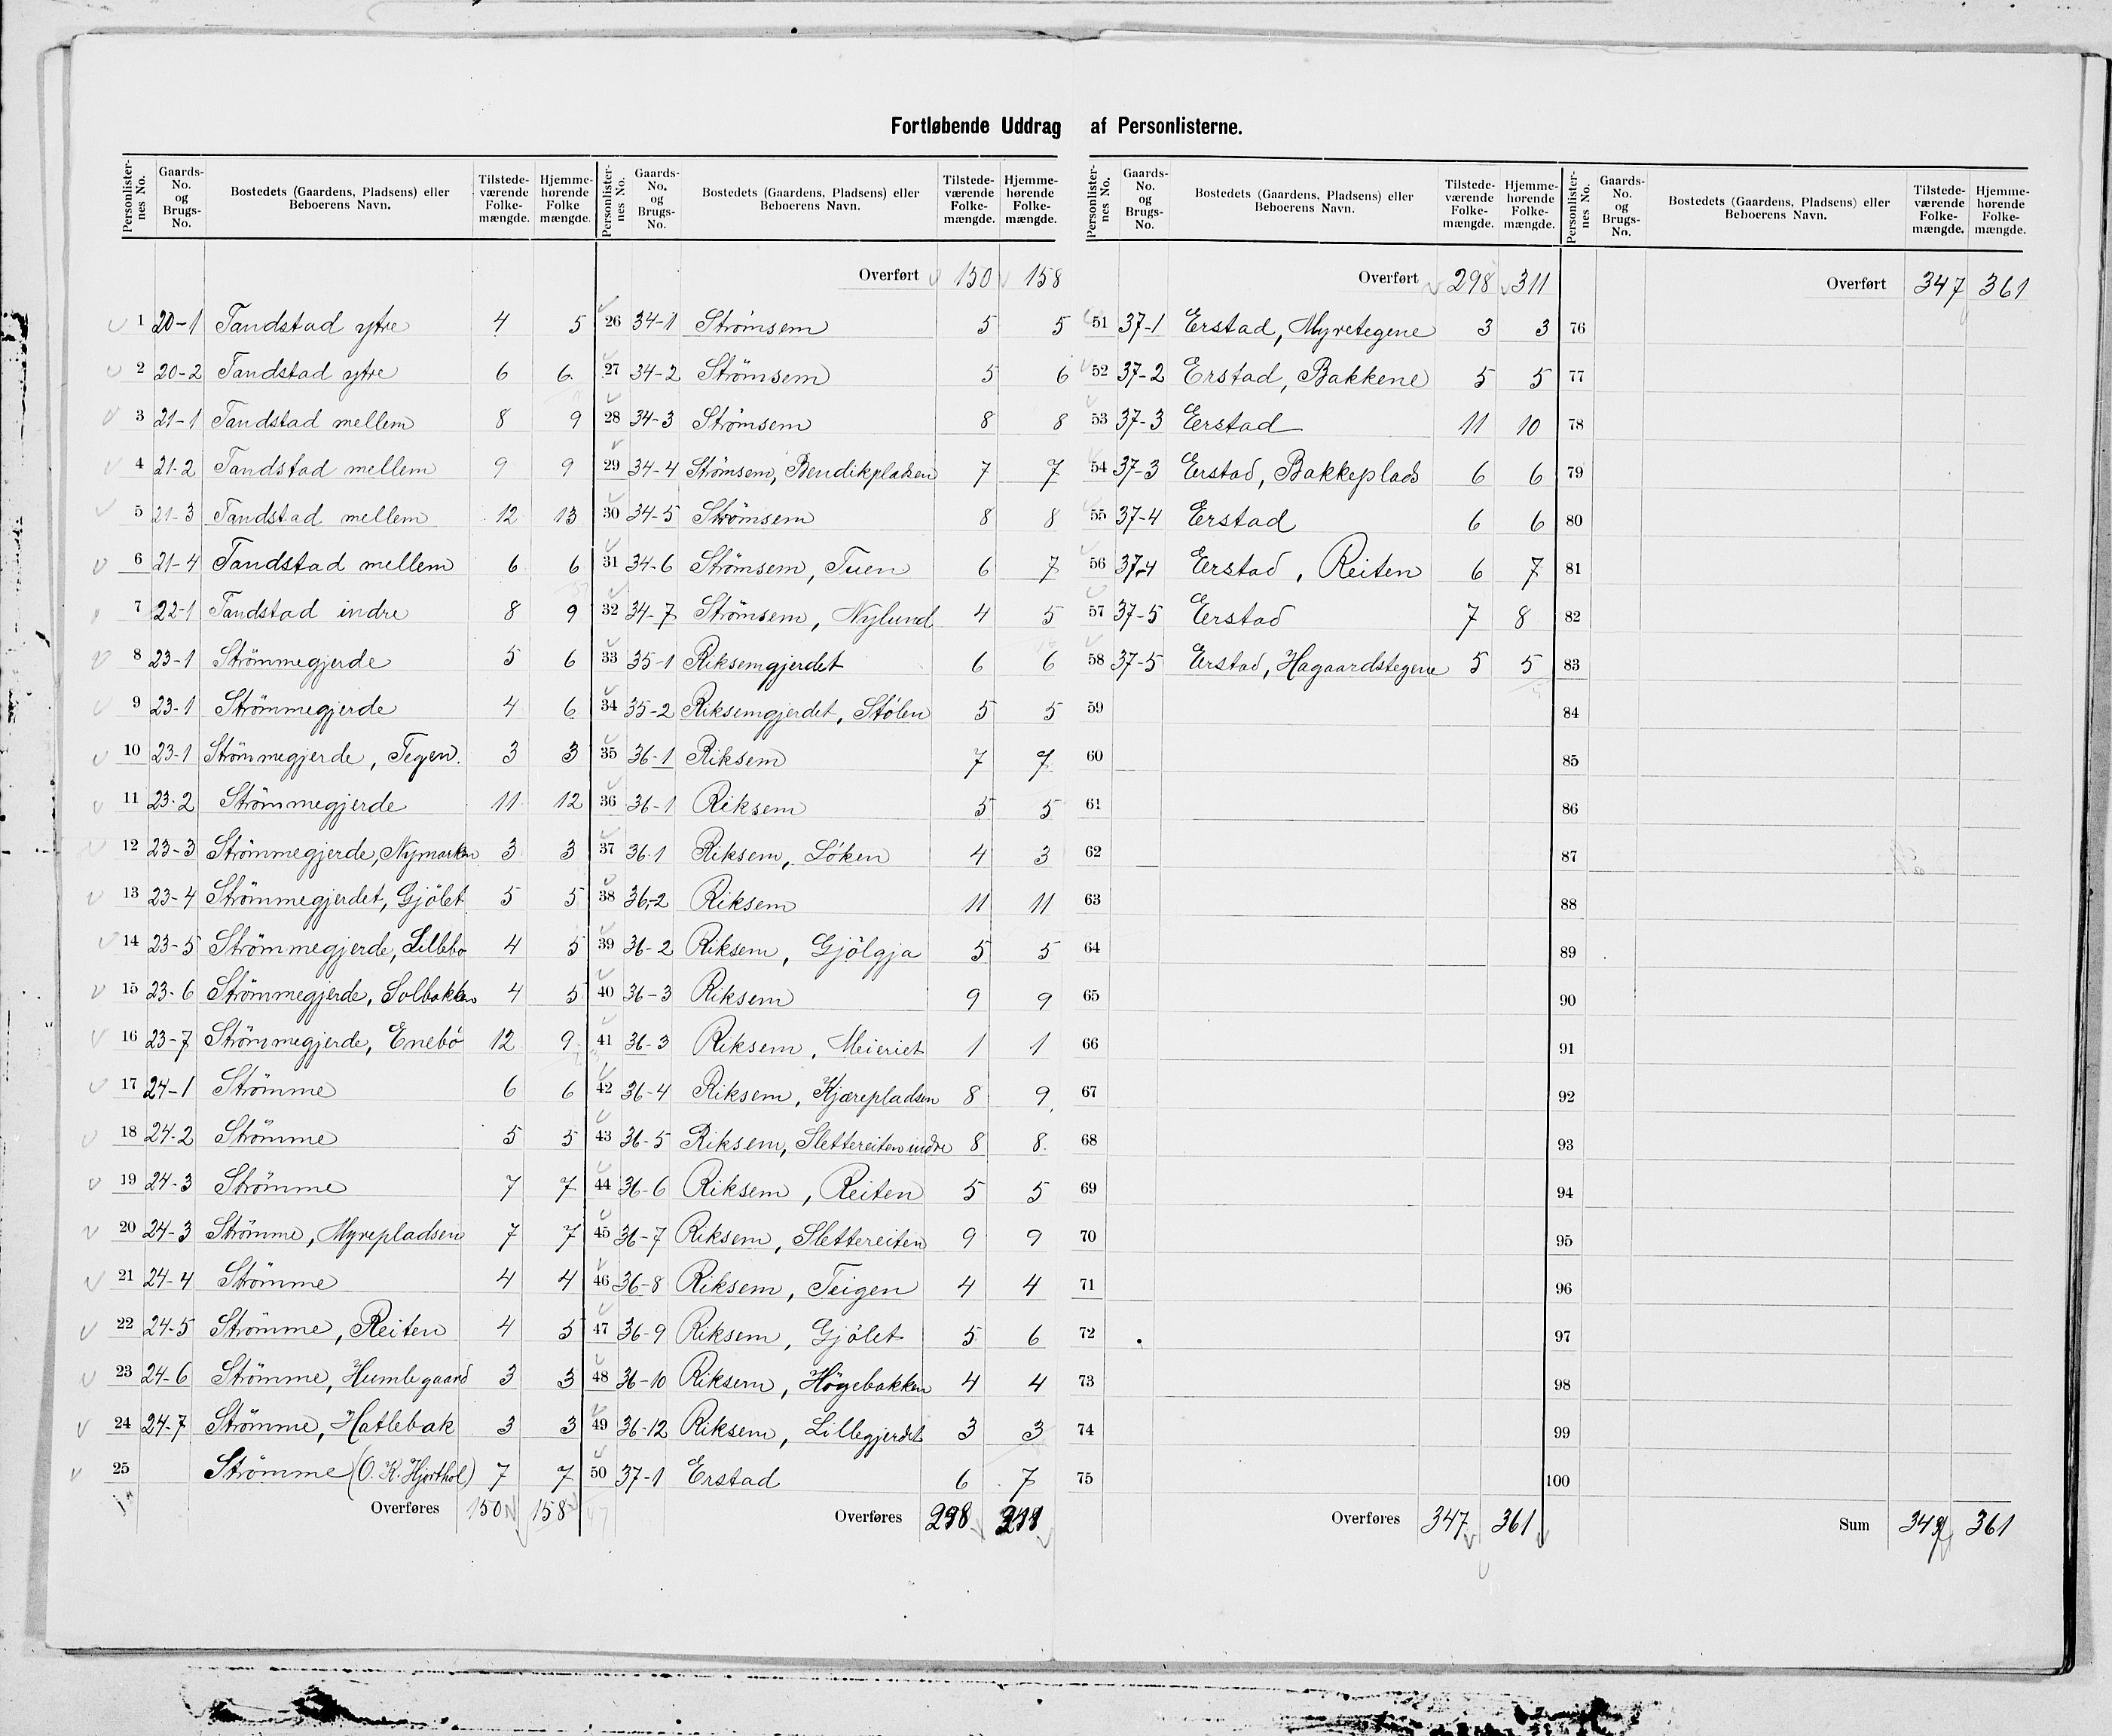 Fortløbende Uddrag af Personlisterne.
Personlister-nes No. Gaards-No. og Brugs-No. Bostedets (Gaardens, Pladsens) eller Beboerens Navn. Tilstede-værende Folke-mængde. Hjemme-hørende Folke mængde.
1 20-1 Tandstad ytre 4 5
2 20-2 Tandstad ytre 6 6
3 21-1 Tandstad mellem 8 9
4 21-2 Tandstad mellem 9 9
5 21-3 Tandstad mellem 12 13
6 21-4 Tandstad mellem 6 6
7 22-1 Tandstad indre 8 9
8 23-1 Strömmegjerde 5 6
9 23-1 Strömmegjerde 4 6
10 23-1 Strömmegjerde, Tegen 3 3
11 23-2 Strömmegjerde 11 12
12 23-3 Strömmegjerde, Nymarken 3 3
13 23-4 Strömmegjerdet, Gjölet 5 5
14 23-5 Strömmegjerde, Lillebo 4 5
15 23-6 Strömmegjerde, Solbakken 4 5
16 23-7 Strömmegjerde, Enebö 12 9
17 24-1 Strömme 6 6
18 24-2 Strömme 5 5
19 24-3 Strömme 7 7
20 24-3 Strömme, Myrepladsen 7 7
21 24-4 Strömme 4 4
22 24-5 Strömme, Reiten 4 5
23 24-6 Strömme, Humlegaard 3 3
24 24-7 Strömme, Hatlebak 3 3
25 Strömme (O. K. Hjorthol) 7 7
Overføres 150 158
Personlister-nes No. Gaards-No. og Brugs-No. Bostedets (Gaardens, Pladsens) eller Beboerens Navn. Tilstede-værende Folke-mængde. Hjemme-hørende Folke-mængde.
Overført 150 158
26 34-1 Strömsem 5 5
27 34-2 Strömsem 5 6
28 34-3 Strömsem 8 8
29 34-4 Strömsem, Bendikpladsen 7 7
30 34-5 Strömsem 8 8
31 34-6 Strömsem, Tuen 6 7
32 34-7 Strömsem, Nylund 4 5
33 35-1 Riksemgjerdet 6 6
34 35-2 Riksemgjerdet, Stølen 5 5
35 36-1 Riksem 7 7
36 36-1 Riksem 5 5
37 36-1 Riksem, Löken 4 3
38 36-2 Riksem 11 11
39 36-2 Riksem, Gjölgja 5 5
40 36-3 Riksem 9 9
41 36-3 Riksem, Meieriet 1 1
42 36-4 Riksem, Kjærepladsen 8 9
43 36-5 Riksem, Slettereiten indre 8 8
44 36-6 Riksem, Reiten 5 5
45 36-7 Riksem, Slettereiten 9 9
46 36-8 Riksem, Teigen 4 4
47 36-9 Riksem, Gjölet 5 6
48 36-10 Riksem, Högebakken 4 4
49 36-12 Riksem, Lillegjerdet 3 3
50 37-1 Erstad 6 7
Overføres 298 311
Personlister-nes No. Gaards-No. og Brugs-No. Bostedets (Gaardens, Pladsens) eller Beboerens Navn. Tilstede-værende Folke-mængde. Hjemme-hørende Folke-mængde.
Overført 298 311
51 37-1 Erstad, Myretegene 3 3
52 37-2 Erstad, Bakkene 5 5
53 37-3 Erstad 11 10
54 37-3 Erstad, Bakkeplads 6 6
55 37-4 Erstad 6 6
56 37-4 Erstad, Reiten 6 7
57 37-5 Erstad 7 8
58 37-5 Erstad, Hagaardstegene 5 5
59
60
61
62
63
64
65
66
67
68
69
70
71
72
73
74
75
Overføres 347 361
Personlister-nes No. Gaards-No. og Brugs-No. Bostedets (Gaardens, Pladsens) eller Beboerens Navn. Tilstede-værende Folke-mængde. Hjemme-hørende Folke-mængde.
Overført 347 361
76
77
78
79
80
81
82
83
84
85
86
87
88
89
90
91
92
93
94
95
96
97
98
99
100
Sum 347 361